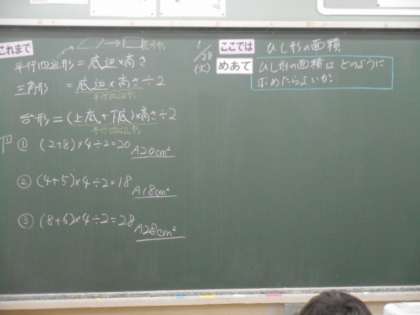 これまで
平行四辺形=底辺×高さ
三角形 =底辺×高さ÷2
平行四辺形
台形=(上底+下底)×高さ÷2
平行四辺形
① (2+8)×4÷2=20 A20cm²
② (4+5)×4÷2=18 A18cm²
③ (8+6)×4÷2=28 A28cm²
1/28
(火)
ここでは ひし形の面積
めあて ひし形の面積は どのように
求めたらよいか?